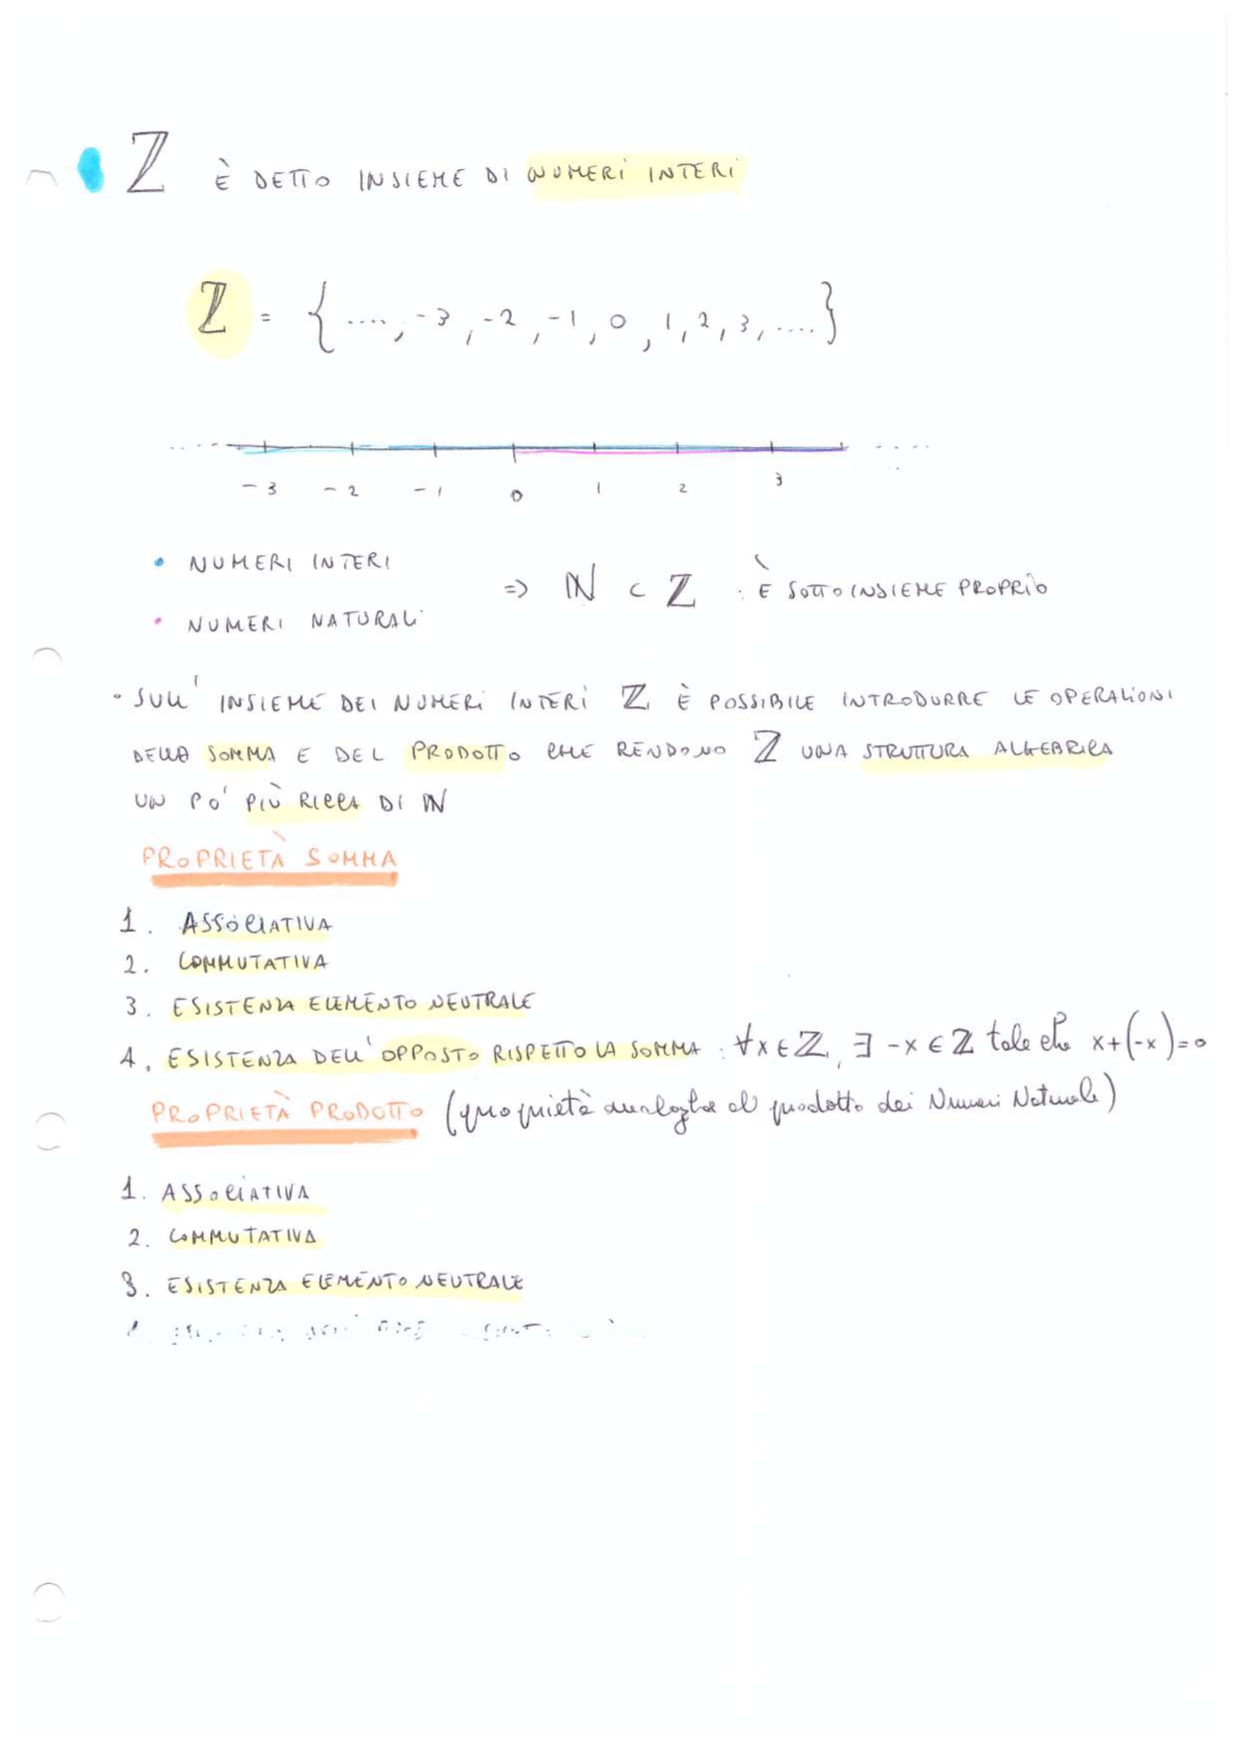 ℤ È DETTO INSIEME DI NUMERI INTERI
ℤ = {...., -3, -2, -1, 0, 1, 2, 3, ....}
..... .....
-3 -2 -1 0 1 2 3
• NUMERI INTERI
⇒ ℕ ⊂ ℤ : È SOTTOINSIEME PROPRIO
• NUMERI NATURALI
• SULL' INSIEME DEI NUMERI INTERI ℤ È POSSIBILE INTRODURRE LE OPERAZIONI
DELLA SOMMA E DEL PRODOTTO CHE RENDONO ℤ UNA STRUTTURA ALGEBRICA
UN PO' PIÙ RICCA DI ℕ
PROPRIETÀ SOMMA
1. ASSOCIATIVA
2. COMMUTATIVA
3. ESISTENZA ELEMENTO NEUTRALE
4. ESISTENZA DELL' OPPOSTO RISPETTO LA SOMMA : ∀x ∈ ℤ, ∃ -x ∈ ℤ tale che x+(-x)=0
PROPRIETÀ PRODOTTO (proprietà analoghe al prodotto dei Numeri Naturali)
1. ASSOCIATIVA
2. COMMUTATIVA
3. ESISTENZA ELEMENTO NEUTRALE